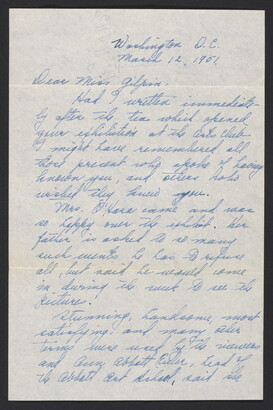 Washington D.C.
March 12, 1951
Dear Miss Gilpin.
Had I written immediate-
ly after the tea which opened
your exhibition at the Arts Club
I might have remembered all
those present who spoke of having
known you, and others who
wished they knew you.
Mrs. O'Hara came and was
so happy over the exhibit. Her
father is asked to so many
such events, he has to refuse
all, but said he would come
in during the week to see the
pictures!
Stunning, handsome, most
satisfying and many other
terms were used by the viewers
and Ann Abbott, head of
the Abbott Art School, said the